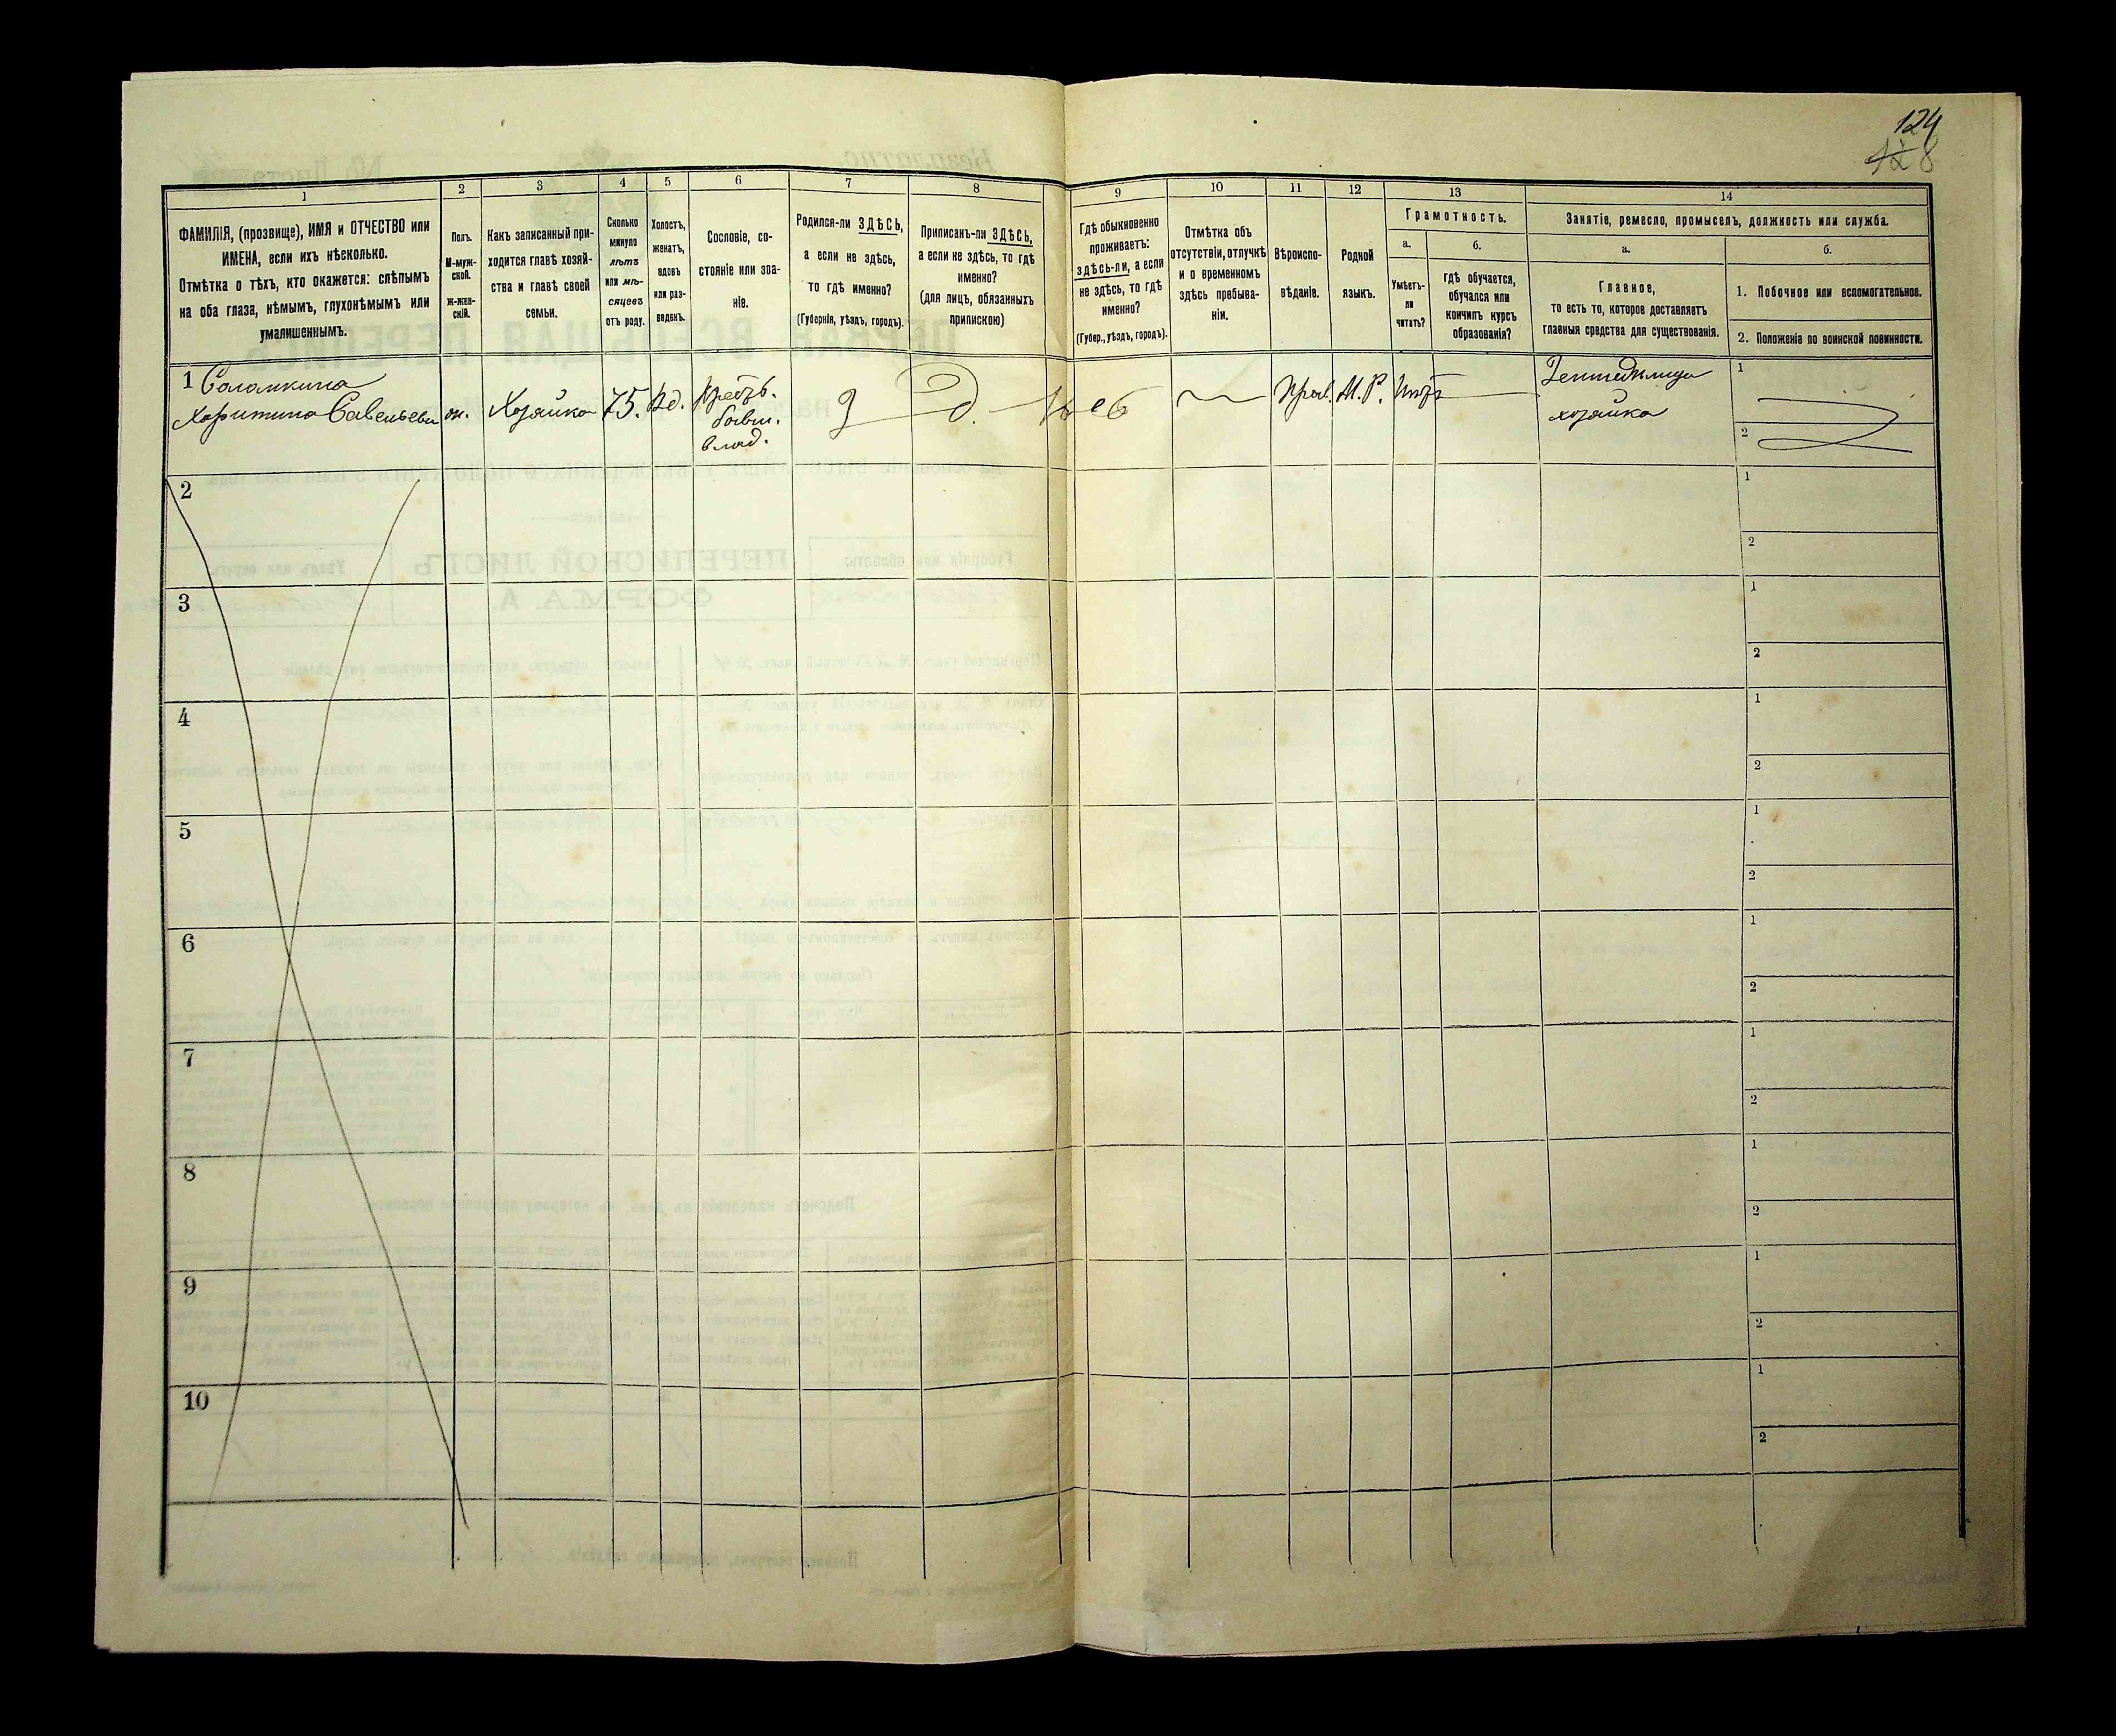 124
128
1
2
3
4
5
6
7
8
9
10
11
12
13
14
ФАМИЛІЯ, (прозвище), ИМЯ и ОТЧЕСТВО или
ИМЕНА, если ихъ нѣсколько.
Отмѣтка о тѣхъ, кто окажется: слѣпымъ
на оба глаза, нѣмымъ, глухонѣмымъ или
умалишеннымъ.
Полъ.
М-муж-
ской.
Ж-жен-
скій.
Какъ записанный при-
ходится главѣ хозяй-
ства и главѣ своей
семьи.
Сколько
минуло
лѣтъ
или мѣ-
сяцевъ
отъ роду.
Холостъ,
женатъ,
вдовъ
или раз-
веденъ.
Сословіе, со-
стояніе или зва-
ніе.
Родился-ли ЗДѢСЬ,
а если не здѣсь,
то гдѣ именно?
(Губернія, уѣздъ, городъ).
Приписанъ-ли ЗДѢСЬ,
а если не здѣсь, то гдѣ
именно?
(для лицъ, обязанныхъ
припискою)
Гдѣ обыкновенно
проживаетъ:
здѣсь-ли, а если
не здѣсь, то гдѣ
именно?
(Губер., уѣздъ, городъ).
Отмѣтка объ
отсутствіи, отлучкѣ
и о временномъ
здѣсь пребыва-
ніи.
Вѣроиспо-
вѣданіе.
Родной
языкъ.
Грамотность.
а.
Умѣетъ-
ли
читать?
б.
гдѣ обучается,
обучался или
кончилъ курсъ
образованія?
Занятіе, ремесло, промыселъ, должность или служба.
а.
Главное,
то есть то, которое доставляетъ
главныя средства для существованія.
б.
1. Побочное или вспомогательное.
2. Положеніе по воинской повинности.
1 Саламкина
Харитина Савельева
ж.
Хозяйка
75.
Вд.
Крестьь.
бывш.
влад.
З
Д.
Прав.
М.Р.
Нѣтъ
Земледѣлица
хозяйка
1
2
2
1
2
3
1
2
4
1
2
5
1
2
6
1
2
7
1
2
8
1
2
9
1
2
10
1
2